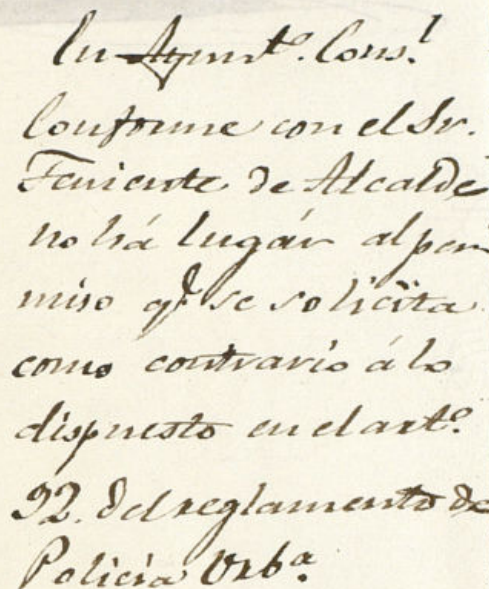 En Ayunt.º Cons.l
Conforme con el Sr.
Teniente de Alcalde
no há lugár al per
miso q.e se solicita
como contrario á lo
dispuesto en el art.º
92. del reglamento de
Policia Urb.a